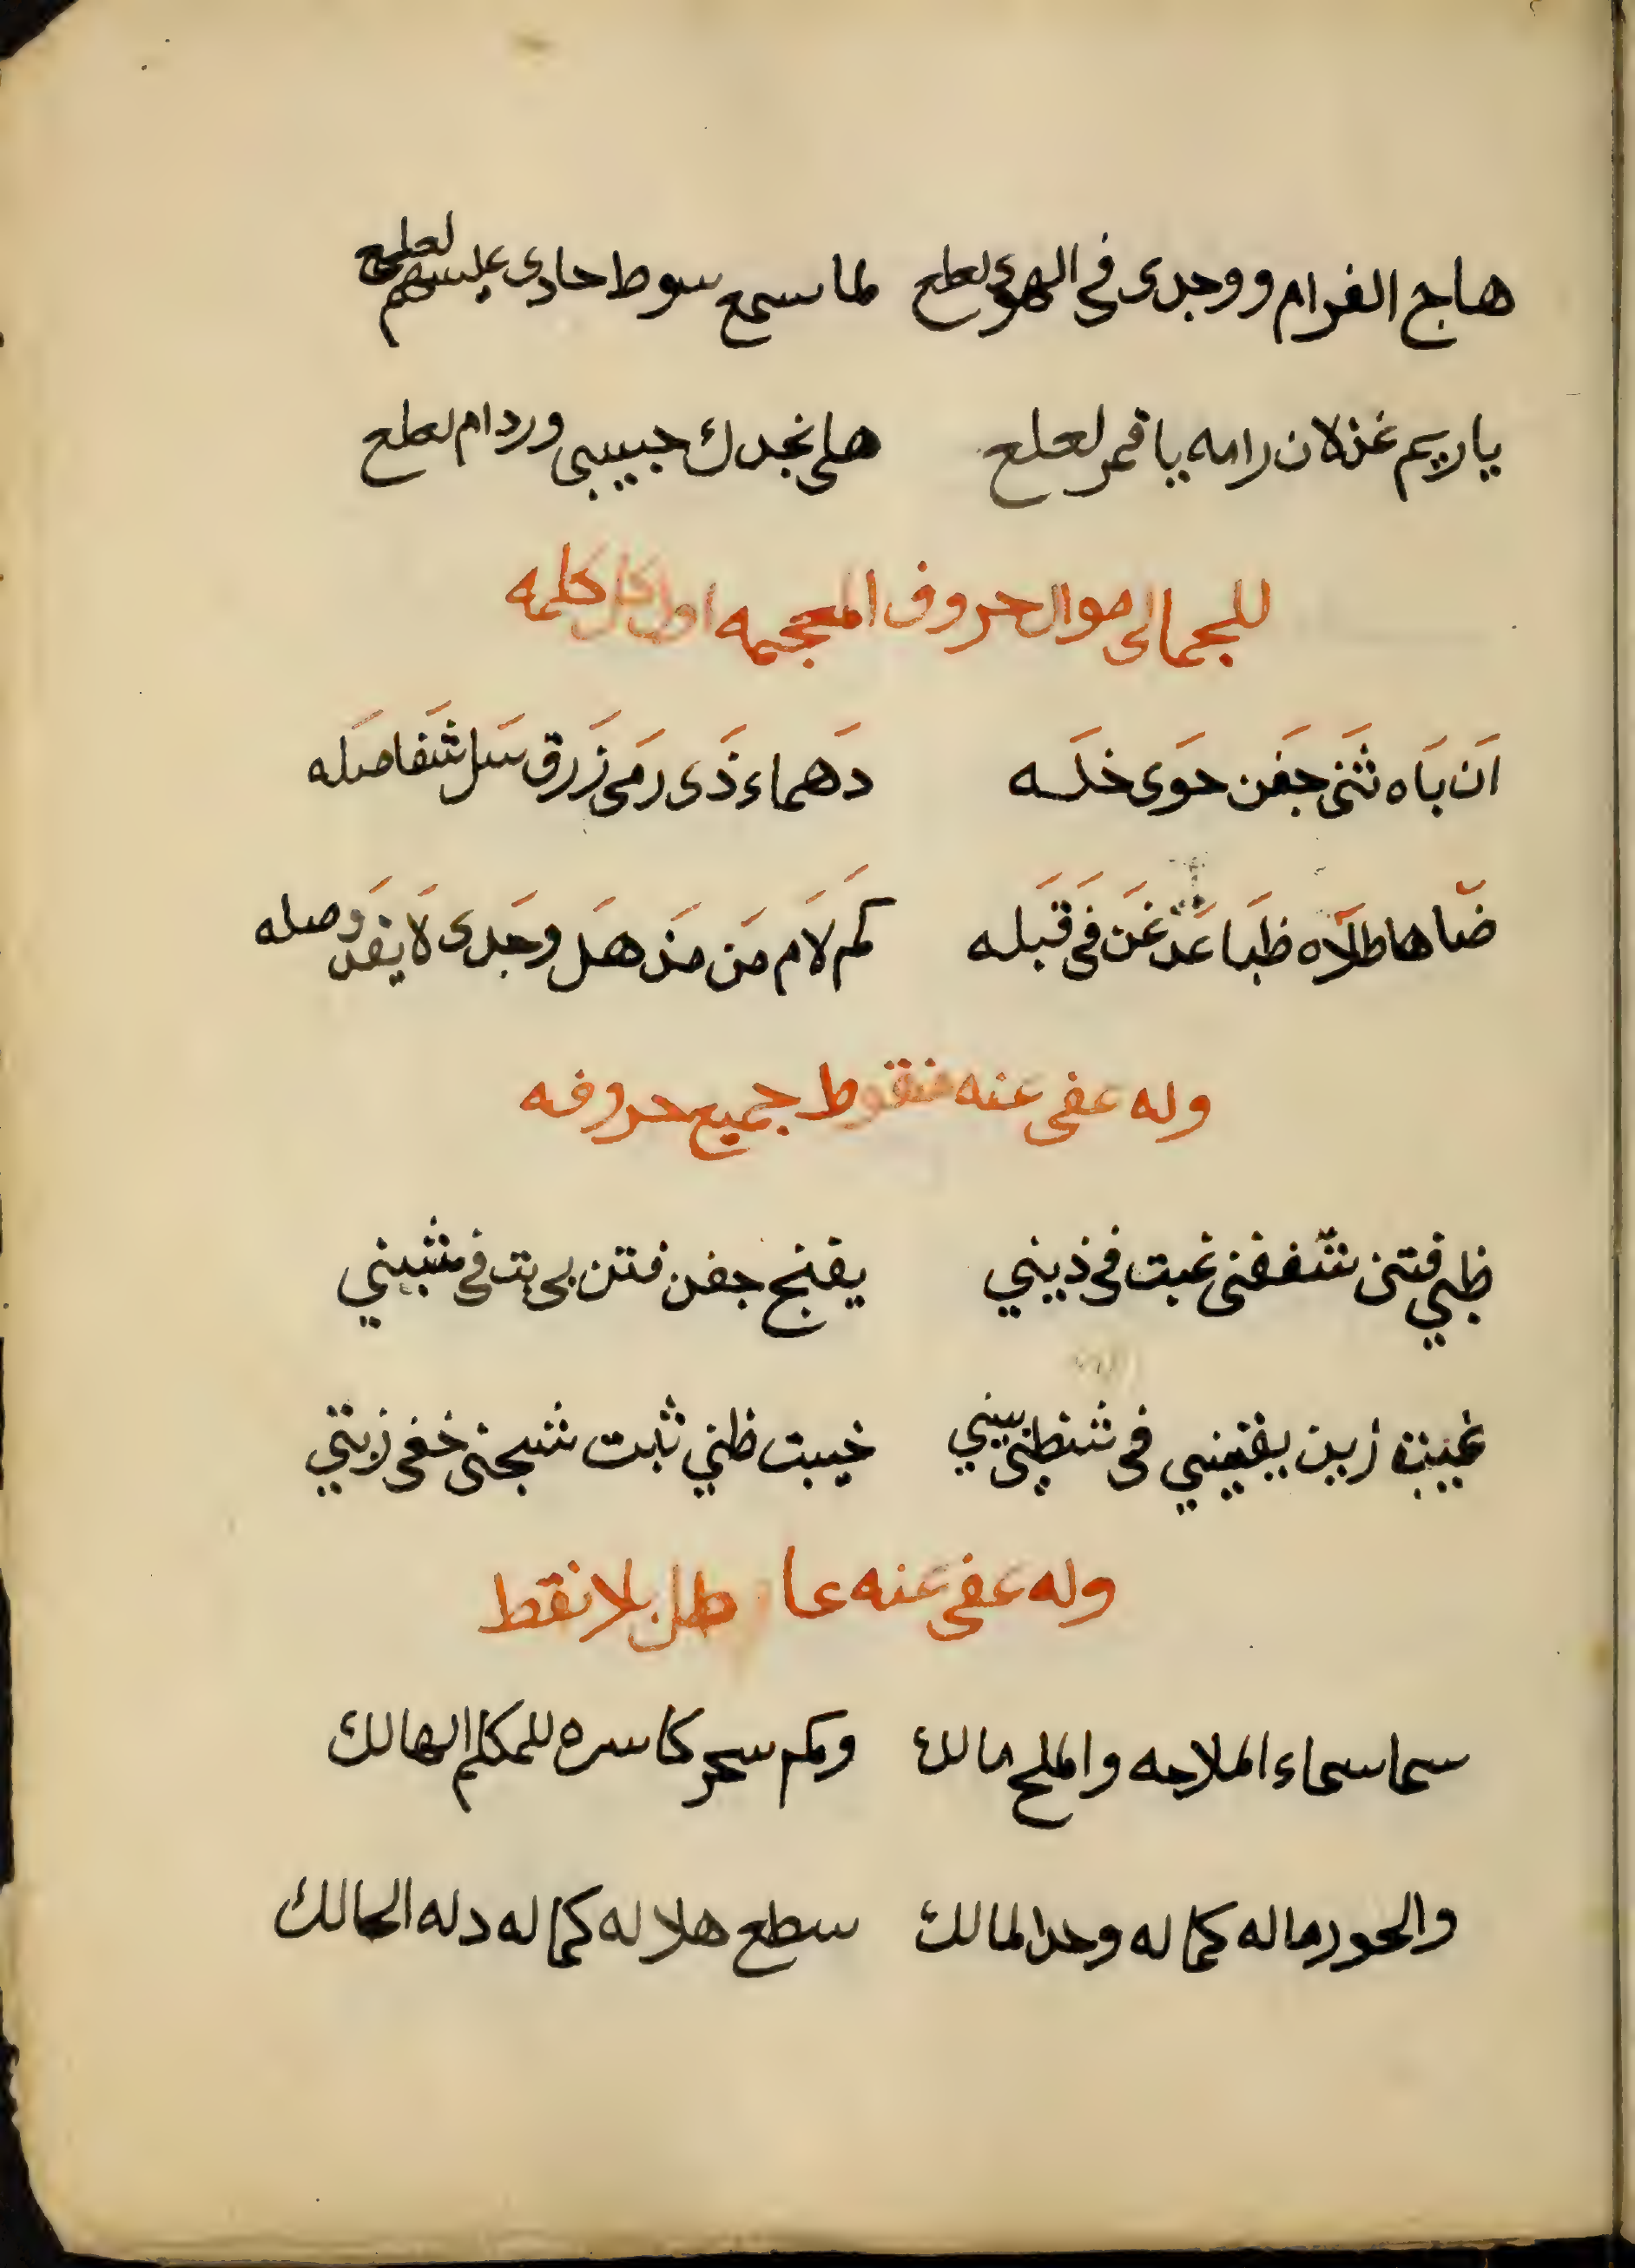 هاج الغرام ووجدى فى الهوى لعلع لما سمع سوط حادى عيسهم لعلع
ياريم غزلان رامه يا قمر لعلع هل نجدك حبيبى ورد ام لعلع
للجمالى موال حروف المعجمه اول كل كلمه
اَن بَاه ثَنى جَفن حَوى خلَه دَهماء ذَى رَمى زَرق سَل شَفا صَله
ضَاها طلَاه ظبَا عَذ غَن فى قَبله كَم لَام مَن مَذهَل وجَدى لَا يفَد وصله
وله عفى عنه منقوط جميع حروفه
ظبي فتن شغفنى غبت فى ذيني يغنج جفن فتن بى بت فى شيني
زين يفتيني فى بيني خيبت ظني ثبت شجنى خفى زيتي
وله عفى عنه عاطل بلا نقط
سما سماء الملاحه والملح مالك وكم سحر كاسره للمكلم الهالك
والحور ماله كماله وحد المالك سطع هلاله كماله دله الحالك